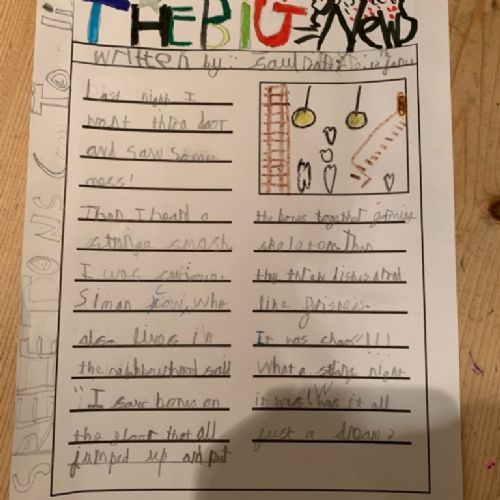 THE BIG NEWS
Written by: Saul Date:
SKELETONS COME TO
Last night I
went thro a door
and saw some
mess!
Then I heard a
strange smash
I was curious.
Simon cow, who
also lives in
the neighbourhood said
"I saw bones on
the floor that all
jumped up and put
the bones together
skeleton. Then
the threw dishes
like frisbees.
It was chaos!!!!
What a night
it was! Was it all
just a dream?